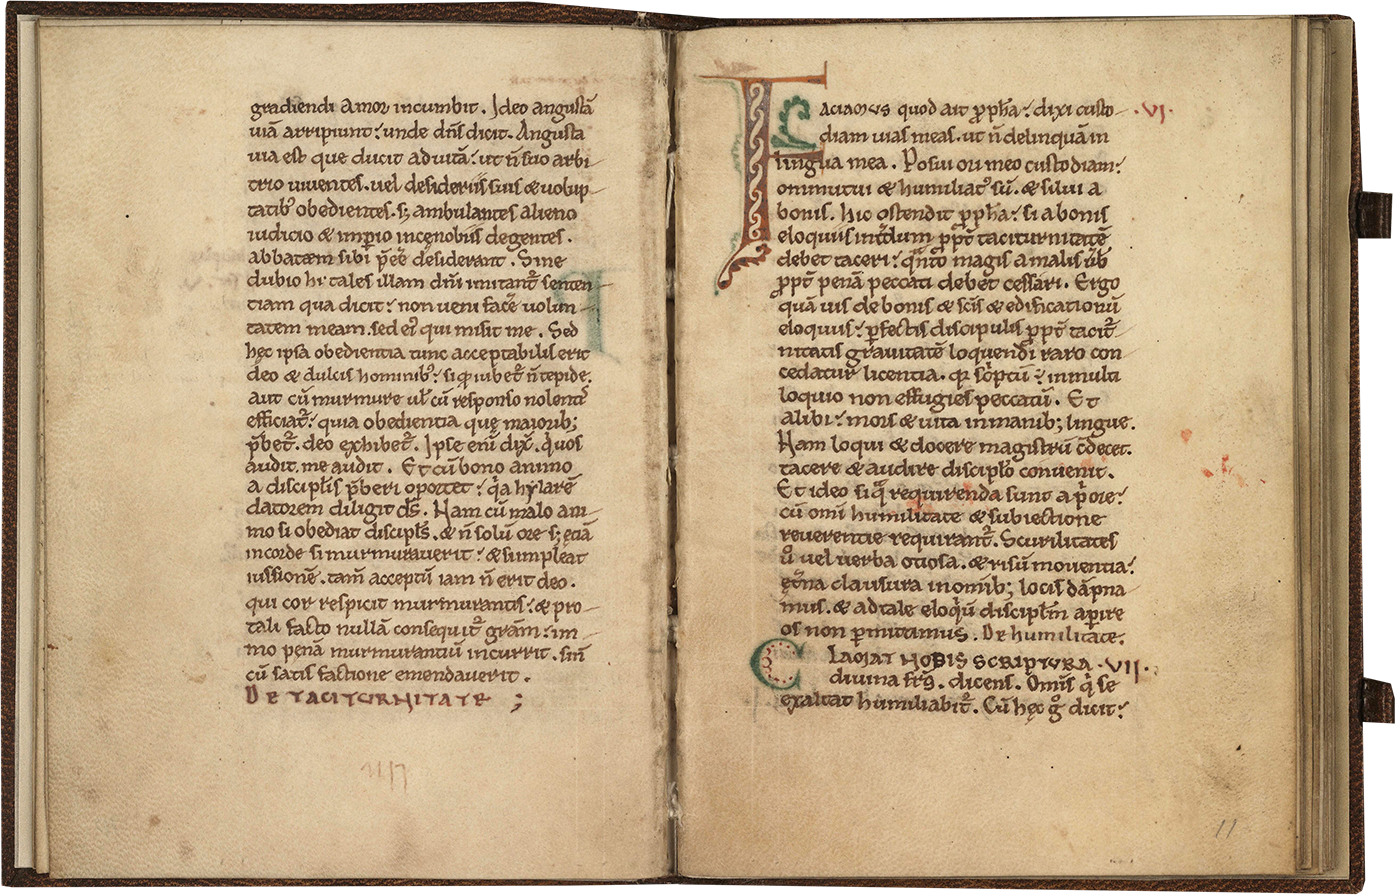 gradiendi amor incumbit. Ideo angustā
uiā arripiunt: unde dn̄s dicit. Angusta
uia est que ducit ad uitā: ut n̄ suo arbi-
trio uiuentes. uel desideriis suis & uolup-
tatib; obedientes. s; ambulantes alieno
iudicio & imperio in cęnobiis degentes.
abbatem sibi p̄eē desiderant. Sine
dubio hi tales illam dn̄i imitant̄ senten-
tiam qua dicit: non ueni facē uolun-
tatem meam. sed ei' qui misit me. Sed
hęc ipsa obedientia tunc acceptabilis erit
deo & dulcis hominib': si qd̄ iubet̄ n̄ tepide.
aut cū murmure ul̄ cū responso nolent̄
efficiat̄: quia obedientia quę maiorib;
p̄bet̄. deo exhibet̄. Ipse enī dix̄. q̇uos
audit. me audit. Et cū bono animo
a discipl̄is p̄beri oportet: q̇a hylarē
datorem diligit d̄s. Nam cū malo ani-
mo si obediat discipl̄s. & n̄ solū ore s; ęciā
in corde si murmurauerit: & si impleat
iussionē. tam̄ acceptū iam n̄ erit deo.
qui cor respicit murmurantis: & pro-
tali facto nullā consequit̄ gr̄am: im-
mo penā murmurantiū incurrit. si n̄
cū satisfactione emendauerit.
DE TACITURNITATE ;
Faciamus quod ait p̄ph̄a: dixi custo- .VI.
diam uias meas. ut n̄ delinquā in
lingua mea. Posui ori meo custodiam:
ommutui & humiliat' sū. & silui a
bonis. hic ostendit p̄ph̄a: si a bonis
eloquiis int̄dum p̄pt̄ taciturnitatē
debet taceri: q̄nto magis a malis ūb̄
p̄pt̄ penā peccati debet cessari. Ergo
quā uis de bonis & sc̄is & edificationū
eloquiis: p̄fectis discipulis p̄pt̄ tacit̄-
nitatis grauitatē loquendi raro con
cedatur licentia. q̄ sc̄ptū: in multi
loquio non effugies peccatū. Et
alibi: mors & uita in manib; linguę.
Nam loqui & docere magistrū c̄decet.
tacere & audire discipl̄o conuenit.
Et ideo si q̄ requirenda sunt a p̄ore:
cū omī humilitate & subiectione
reuerentie requirant̄. Scurilitates
ů uel uerba otiosa. & risū mouentia:
ęt̄na clausura in omīb; locis dāpna
mus. & ad tale eloq̇ū discipl̄m aperire
os non p̄mittimus. De humilitate.
CLAMAT NOBIS SCRIPTURA .VII.
diuina fr̄s. dicens. Omīs q̇ se
exaltat humiliabit̄. Cū hęc g̊ dicit:
11